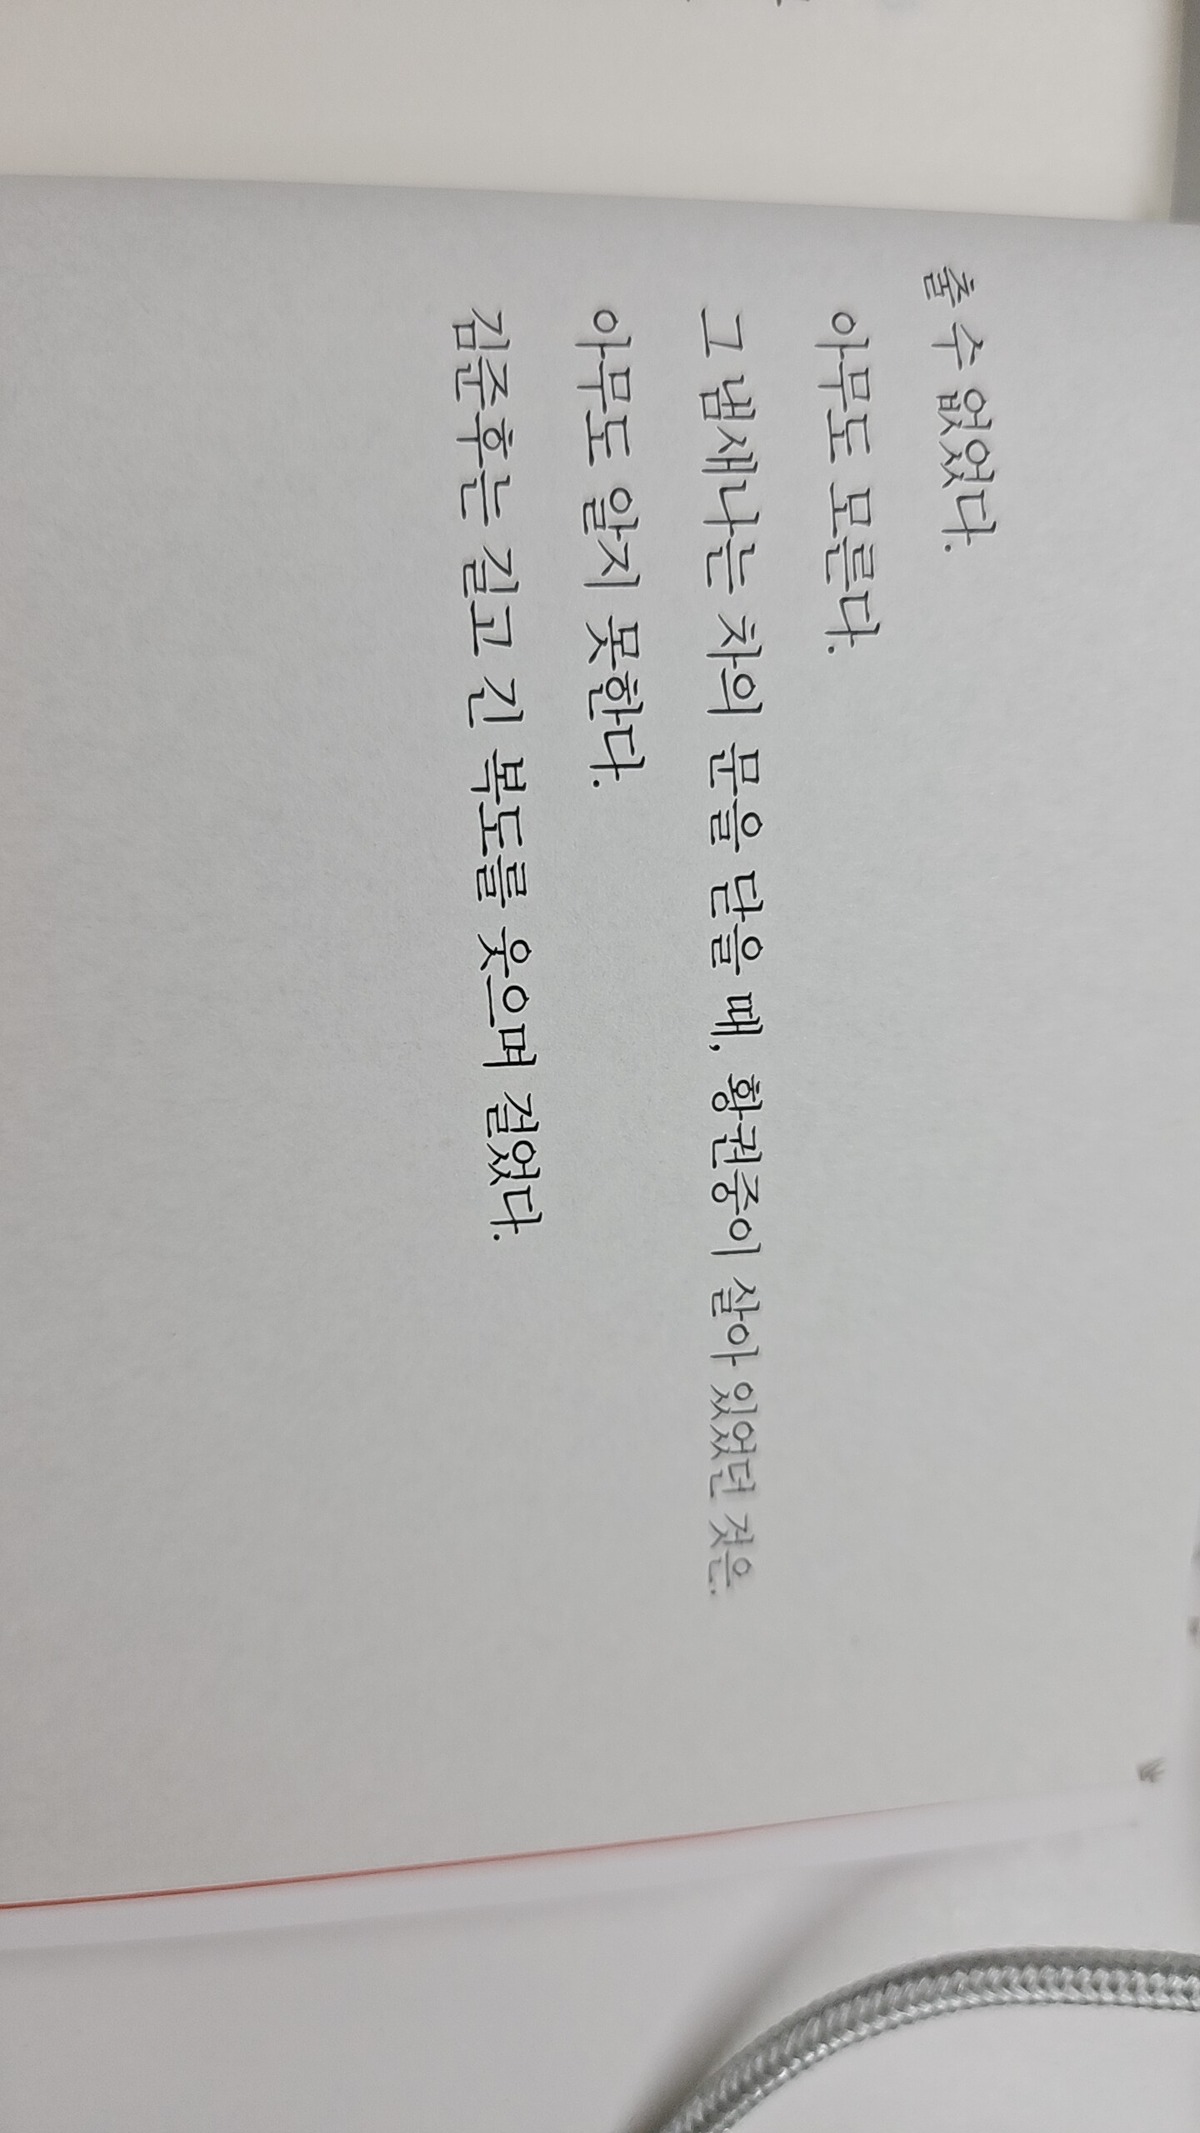 출 수 없었다.
아무도 모른다.
그 냄새나는 차의 문을 닫을 때, 황권중이 살아 있었던 것은.
아무도 알지 못한다.
김준후는 길고 긴 복도를 웃으며 걸었다.